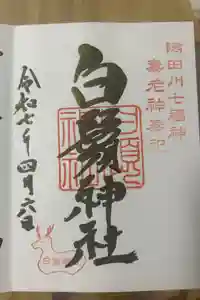 隅田川七福神
寿老神御印
白鬚神社
令和七年四月六日